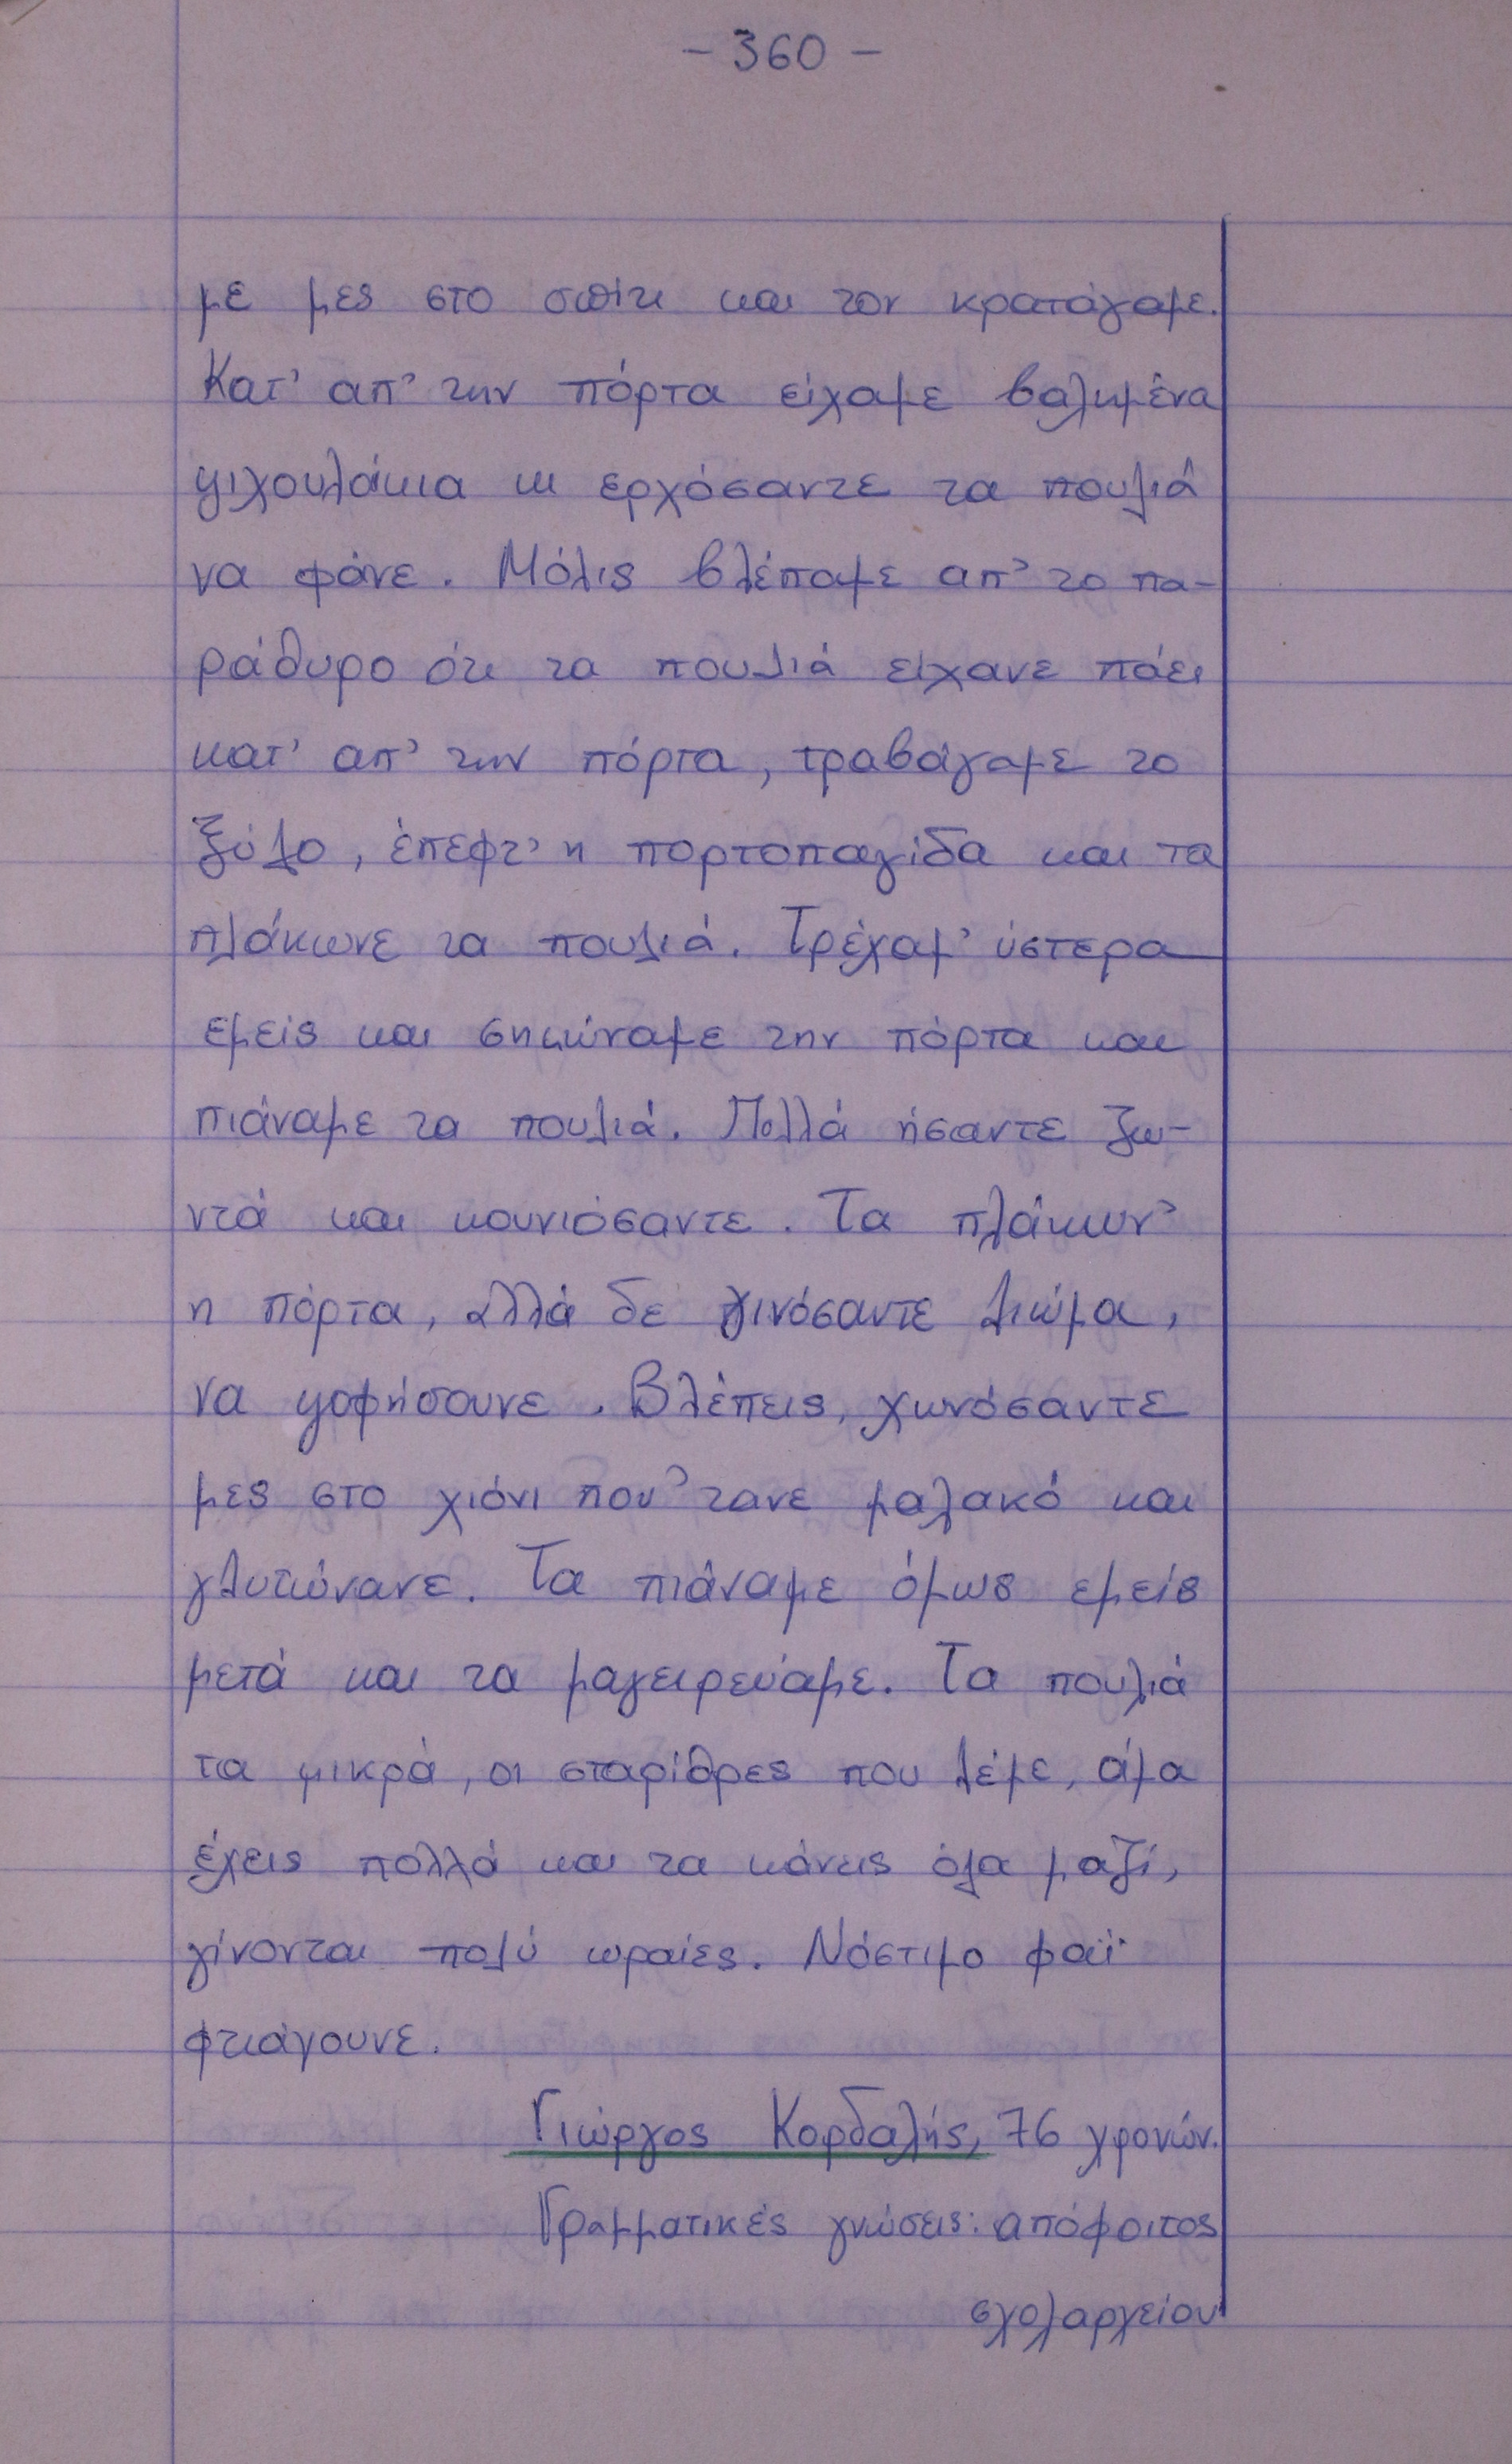 - 360 -
με μες στο σπίτι και τον κρατάγαμε.
Κατ' απ' την πόρτα είχαμε βαλημένα
ψιχουλάκια κι ερχόσαντε τα πουλιά
να φάνε. Μόλις βλέπαμε απ' το πα-
ράθυρο ότι τα πουλιά είχανε πάει
κατ' απ' την πόρτα, τραβάγαμε το
ξύλο, έπεφτ' η πορτοπαγίδα και τα
πλάκωνε τα πουλιά. Τρέχαμ' ύστερα
εμείς και σηκώναμε την πόρτα και
πιάναμε τα πουλιά. Πολλά ήσαντε ζω-
ντά και κουνιόσαντε. Τα πλάκων'
η πόρτα, αλλά δε γινόσαντε λιώμα,
να ψοφήσουνε. Βλέπεις, χωνόσαντε
μες στο χιόνι που 'τανε μαλακό και
γλυτώνανε. Τα πιάναμε όμως εμείς
μετά και τα μαγειρεύαμε. Τα πουλιά
τα μικρά, οι σταρίθρες που λέμε, άμα
έχεις πολλά και τα κάνεις όλα μαζί,
γίνονται πολύ ωραίες. Νόστιμο φαΐ
φτιάγουνε.
Γιώργος Κορδαλής, 76 χρονών.
Γραμματικές γνώσεις: απόφοιτος
σχολαρχείου